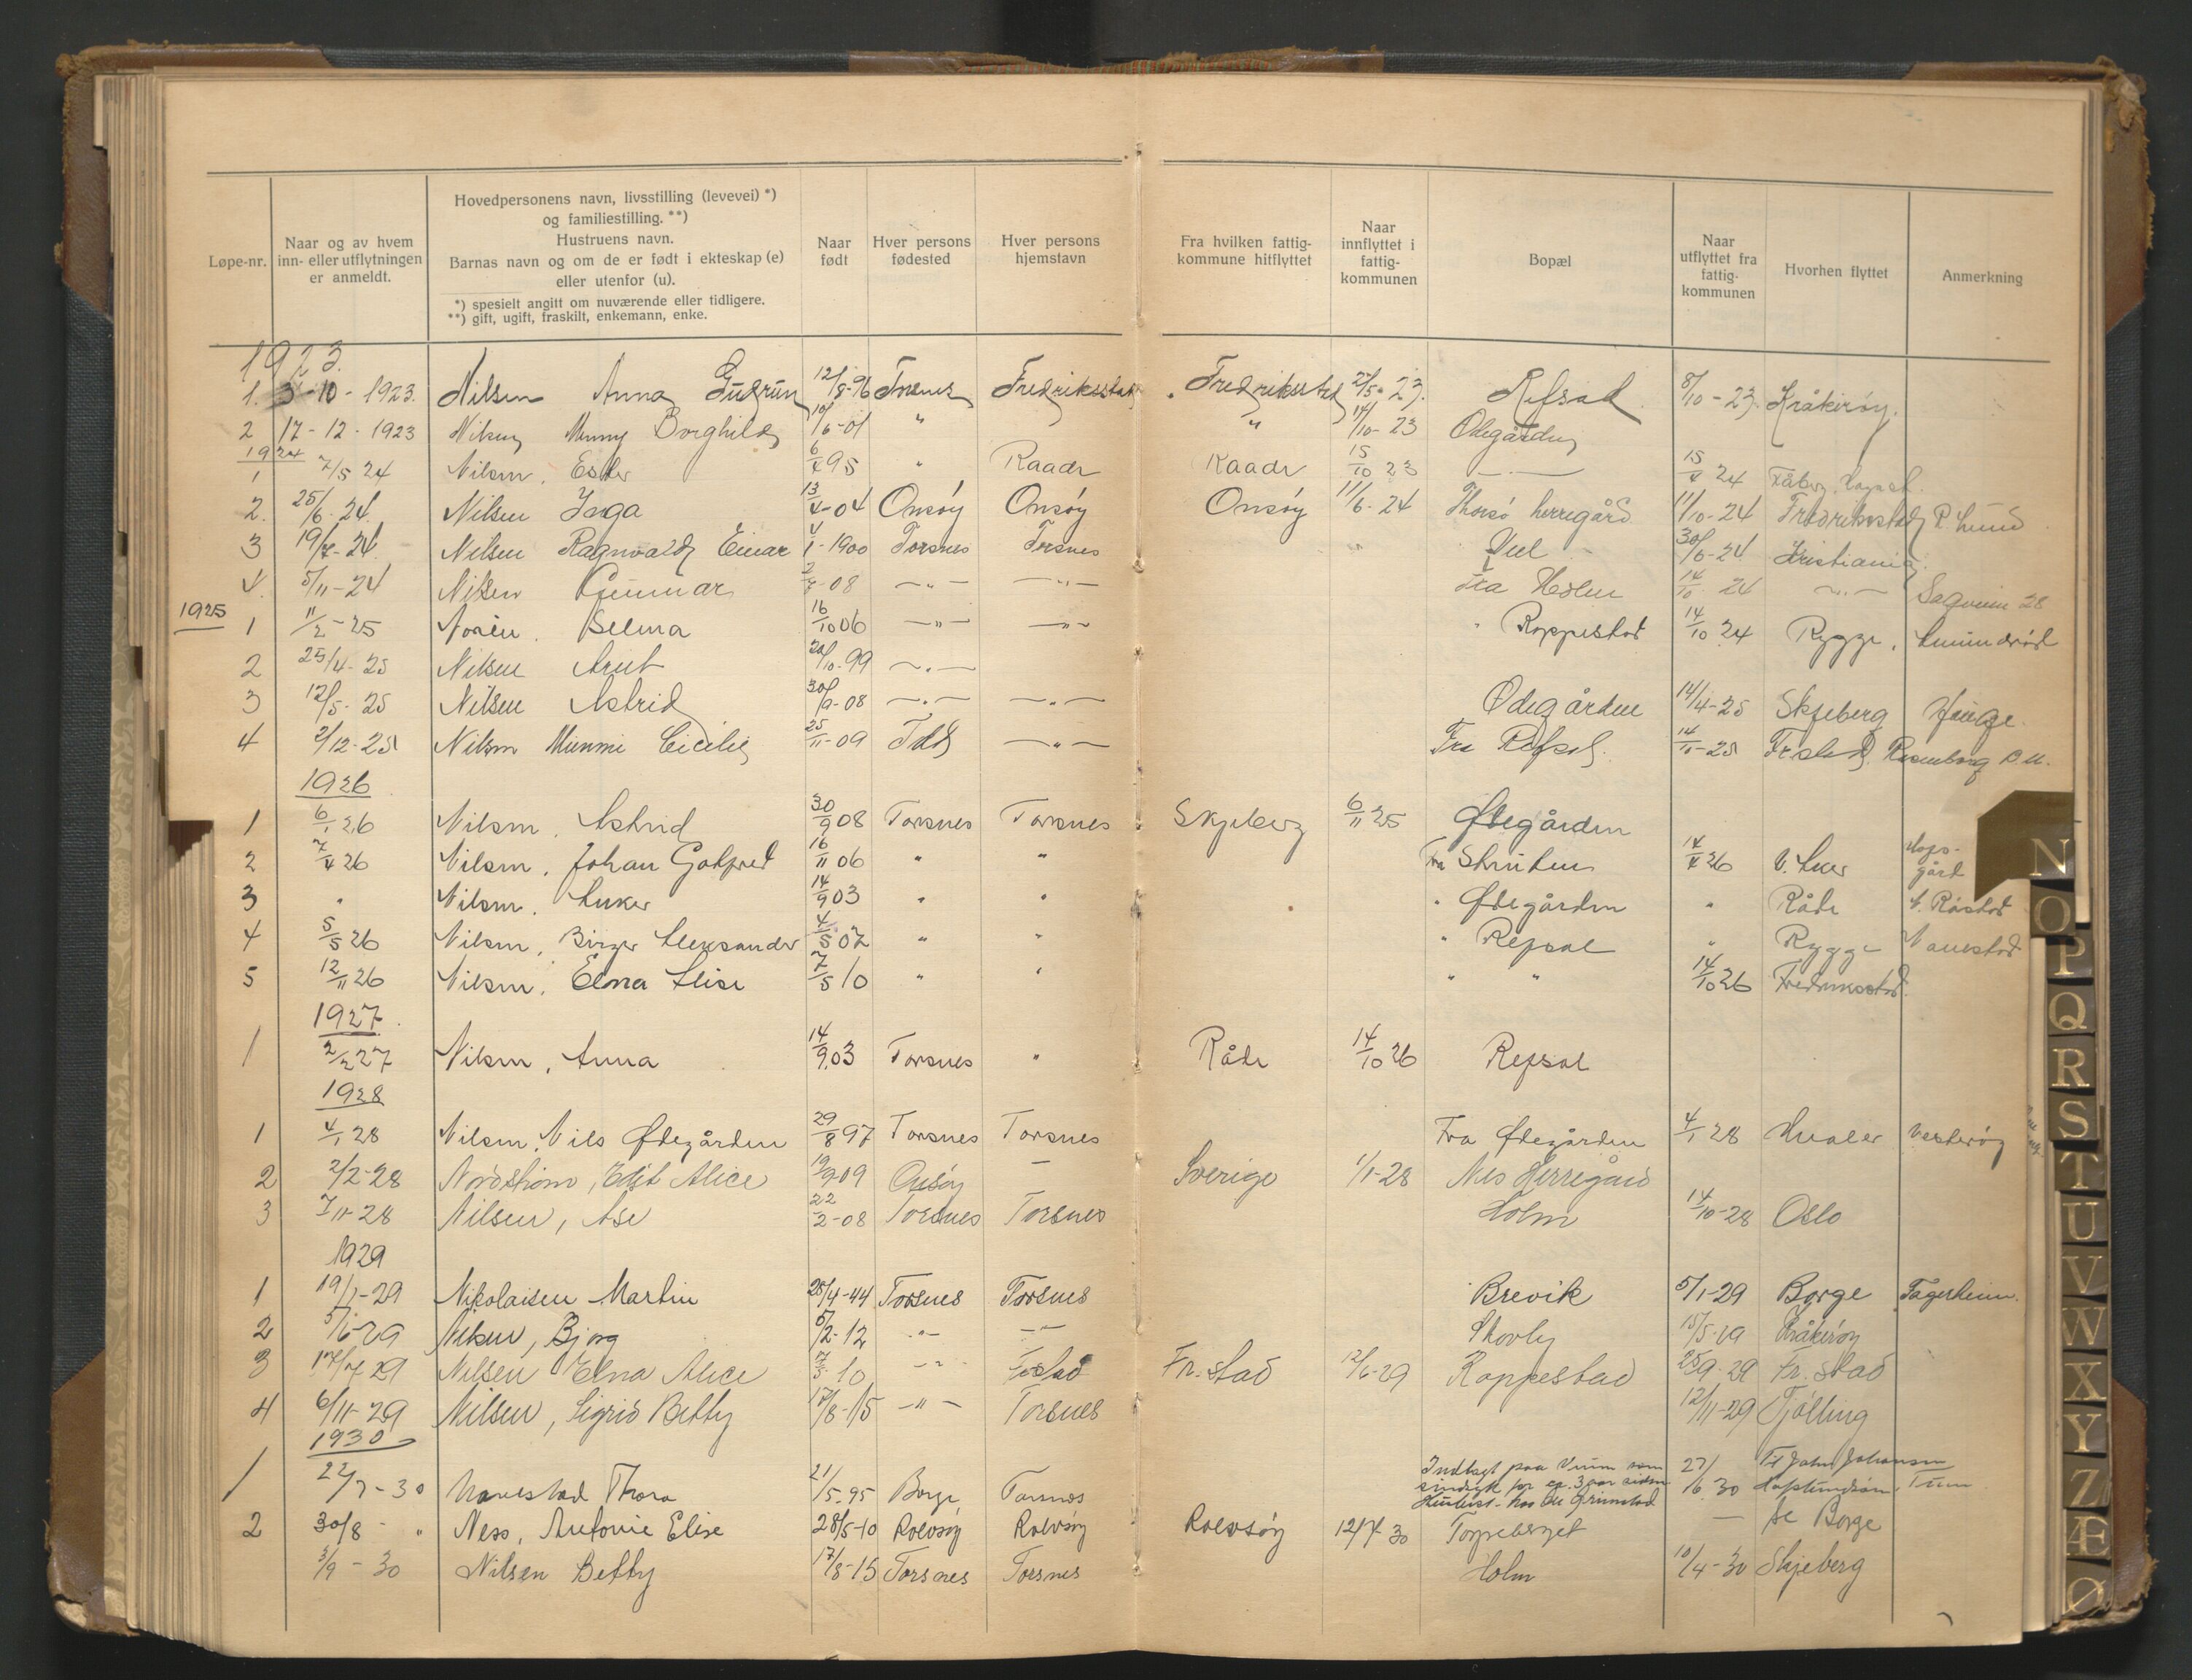 Løpe-nr. | Naar og av hvem inn- eller utflytningen er anmeldt. | Hovedpersonens navn, livsstilling (levevei) *) og familiestilling. **) Hustruens navn. Barnas navn og om de er født i ekteskap (e) eller utenfor (u). *) spesielt angitt om nuværende eller tidligere. **) gift, ugift, fraskilt, enkemann, enke. | Naar født | Hver persons fødested | Hver persons hjemstavn | Fra hvilken fattig-kommune hitflyttet | Naar innflyttet i fattig-kommunen | Bopæl | Naar utflyttet fra fattig-kommunen | Hvorhen flyttet | Anmerkning
1923.
1. 3-10-1923. Nilsen Anna Gudrun 12/8-96 Torsnes Fredriksstad Fredriksstad 2/5-23. Refsal 8/10-23. Kråkerøy.
2 17-12-1923 Nilsen Borghild 10/6-01 " " 14/10-23 Ødegården
1924
1 7/5 24 Nilsen, Ester 6/4 95 " Raade Raade 15/10 23 —"— 15/4 24
2. 25/6-24. Nilsen Inga 13/4-04 Onsøy Onsøy Onsøy 11/6-24 Thorsø herregård 11/10-24 Fredriksstad P. Lund
3 19/7-24. Nilsen Ragnvald Einar 4/1-1900 Torsnes Torsnes 30/6-24. Kristiania.
4. 5/11-24 Nilsen Gunnar 2/7-08 —"— —"— Fra Holm 14/10 24 —"— 28
1925
1 11/2-25 Selma 16/10 06 —"— —"— Roppestad 14/10 24 Rygge.
2 25/4-25 Nilsen 20/10-99 —"—
3 12/5-25 Nilsen Astrid 30/9-08 —"— —"— Ødegården 14/4-25 Skjeberg
4 2/12-25 Nilsen Minmi Cicilie 25/11-09 —"— Fra Refsal. 14/11-25 Fr.stad Rosenborg
1926
1 6/1 26 Nilsen, Astrid 30/9 08 Torsnes Torsnes Skjeberg 6/11 25 Ødegården
2 7/4 26 Nilsen, Johan Gotfred 16/11 06 " " Fra 14/4 26 V. Aker
3 " Nilsen. 14/9 03 " " " Ødegården " Råde
4 5/5 26 Nilsen, Birger Aleksander 4/5 07 " " " Refsal " Rygge
5 12/11 26 Nilsen, Elna Elise 7/5 10 " " " " 14/10 26 Fredriksstad.
1927.
1 2/2 27 Nilsen, Anna 14/9 03 Torsnes " Råde 14/10 26 Refsal
1928
1 4/1 28 Nilsen, Nils Ødegården 29/8 97 Torsnes Torsnes Fra Ødegården 4/1 28 Hvaler Vesterøy
2 2/2-28 Nordstrøm, Edit Alice 09 Onsøy — Sverige 1/1-28 Nes Herregård
3 7/11-28 Nilsen, Åse 22/2-08 Torsnes Torsnes Holm 14/10-28 Oslo
1929
1 19/1-29 Nikolaisen Martin 28/4-44 Torsnes Torsnes Brevik 5/1-29 Borge Fagerheim.
2 5/6-29 Nilsen, Bjorg 5/2-12 —"— —"— Skovly 15/5-29 Kråkerøy
3 17/7 29 Nilsen Elna Alice 7/5-10 —"— Fr.stad Fr. stad 12/6-29 Roppestad 25/9-29 Fr. stad
4 6/11-29 Nilsen, Sigrid Betty 17/8-15 —"— Torsnes 12/11-29 Tjølling
1930
1 22/7-30 Navestad Thora 21/5-95 Borge Torsnes Indlagt paa Veum som
sindsyk for ca. 3 aar siden 27/6 30 Til John Johansen
2 30/8 - " Ness, Antonie Elise 28/5-10 Rolvsøy Rolvsøy Rolvsøy 12/7 30 Torpeberget — se Borge
3/9-30 Nilsen Betty 17/8-15 Torsnes Torsnes Holm 10/4-30 Skjeberg
N
O
P
Q
R
S
T
U
V
W
X
Y
Z
Æ
Ø